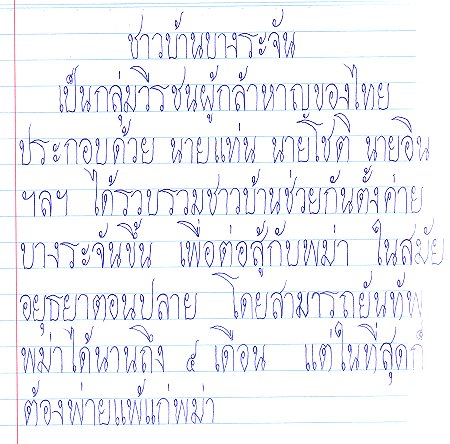 ชาวบ้านบางระจัน
เป็นกลุ่มวีรชนผู้กล้าหาญของไทย
ประกอบด้วย นายแท่น นายโชติ นายอิน
ฯลฯ ได้รวบรวมชาวบ้านช่วยกันตั้งค่าย
บางระจันขึ้น เพื่อต่อสู้กับพม่า ในสมัย
อยุธยาตอนปลาย โดยสามารถยันทัพ
พม่าได้นานถึง ๕ เดือน แต่ในที่สุดก็
ต้องพ่ายแพ้แก่พม่า